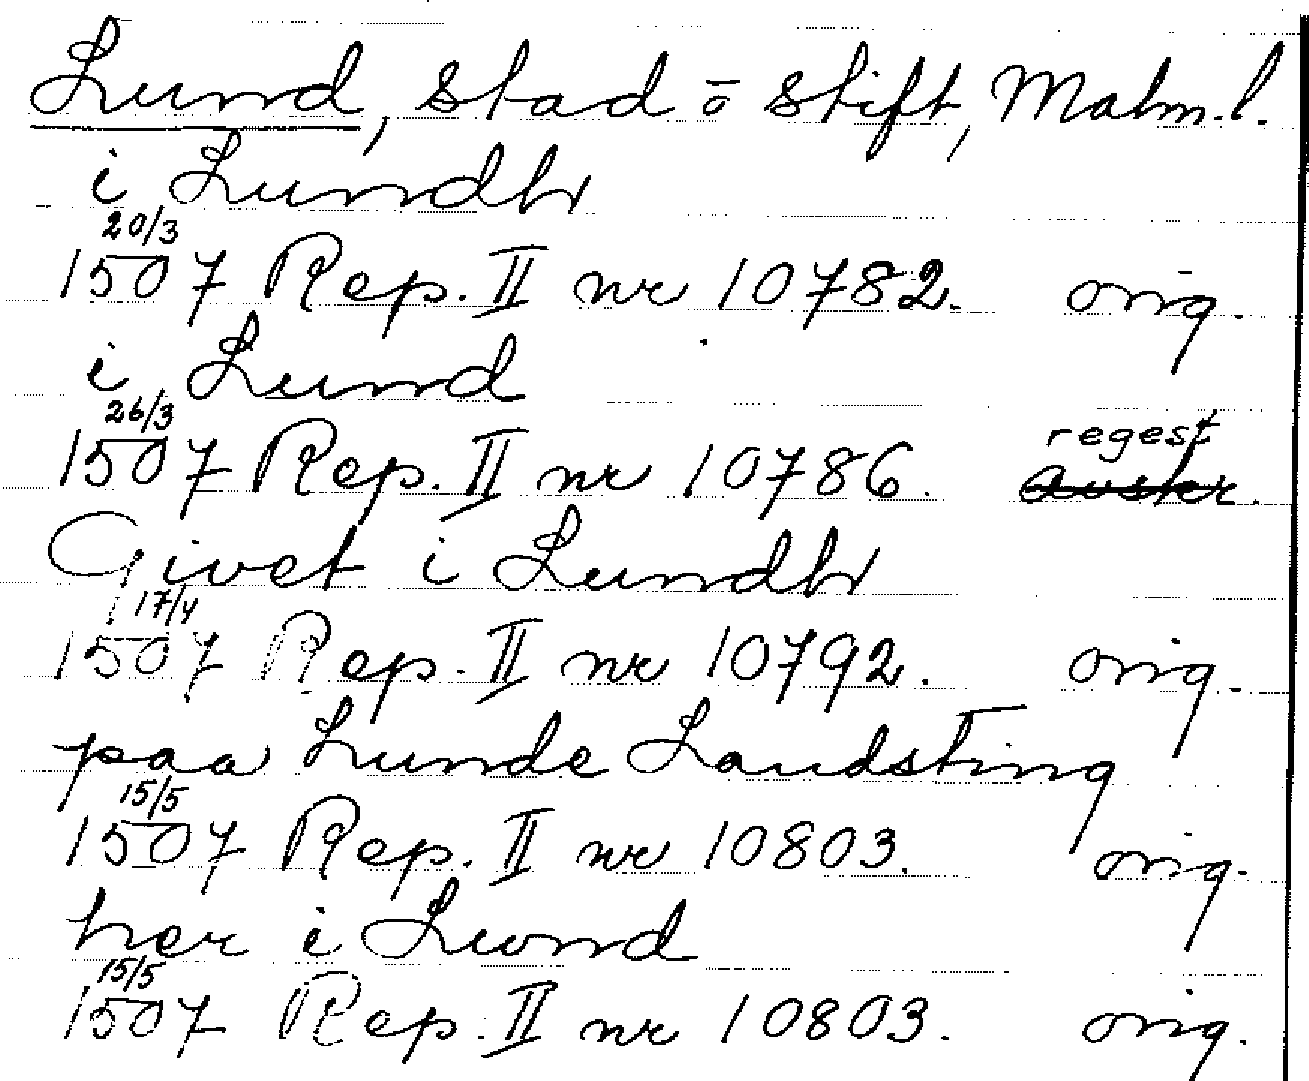 Lund, stad ō stift, Malm.l.
i Lundh
20/3
1507 Rep. II nr 10782. orig.
i Lund
26/3
1507 Rep. II nr 10786. regest avskr.
Givet i Lundh
17/4
1507 Rep. II nr 10792. orig.
paa Lunde Landsting
15/5
1507 Rep. II nr 10803. orig.
her i Lwnd
15/5
1507 Rep. II nr 10803. orig.